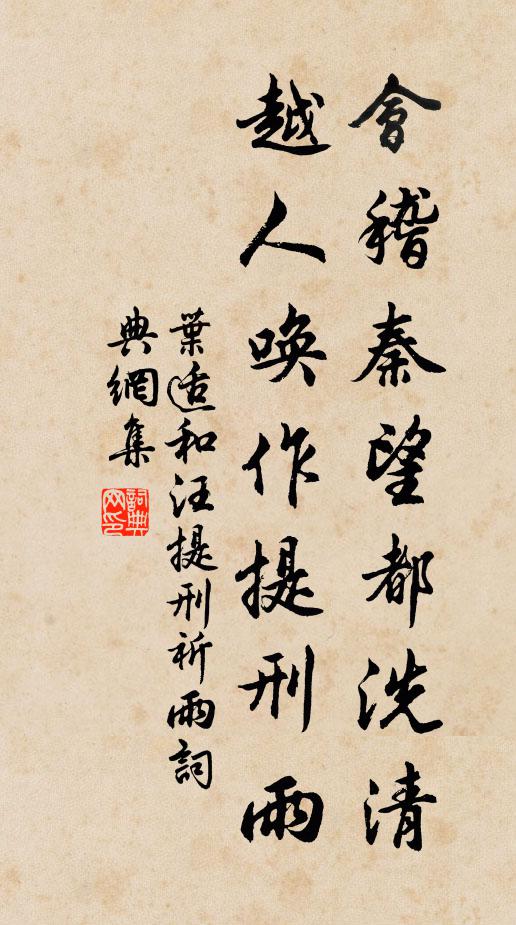 會稽秦望都洗清
越人喚作提刑雨
葉適和汪提刑祈雨詞
典網集
詞典網印